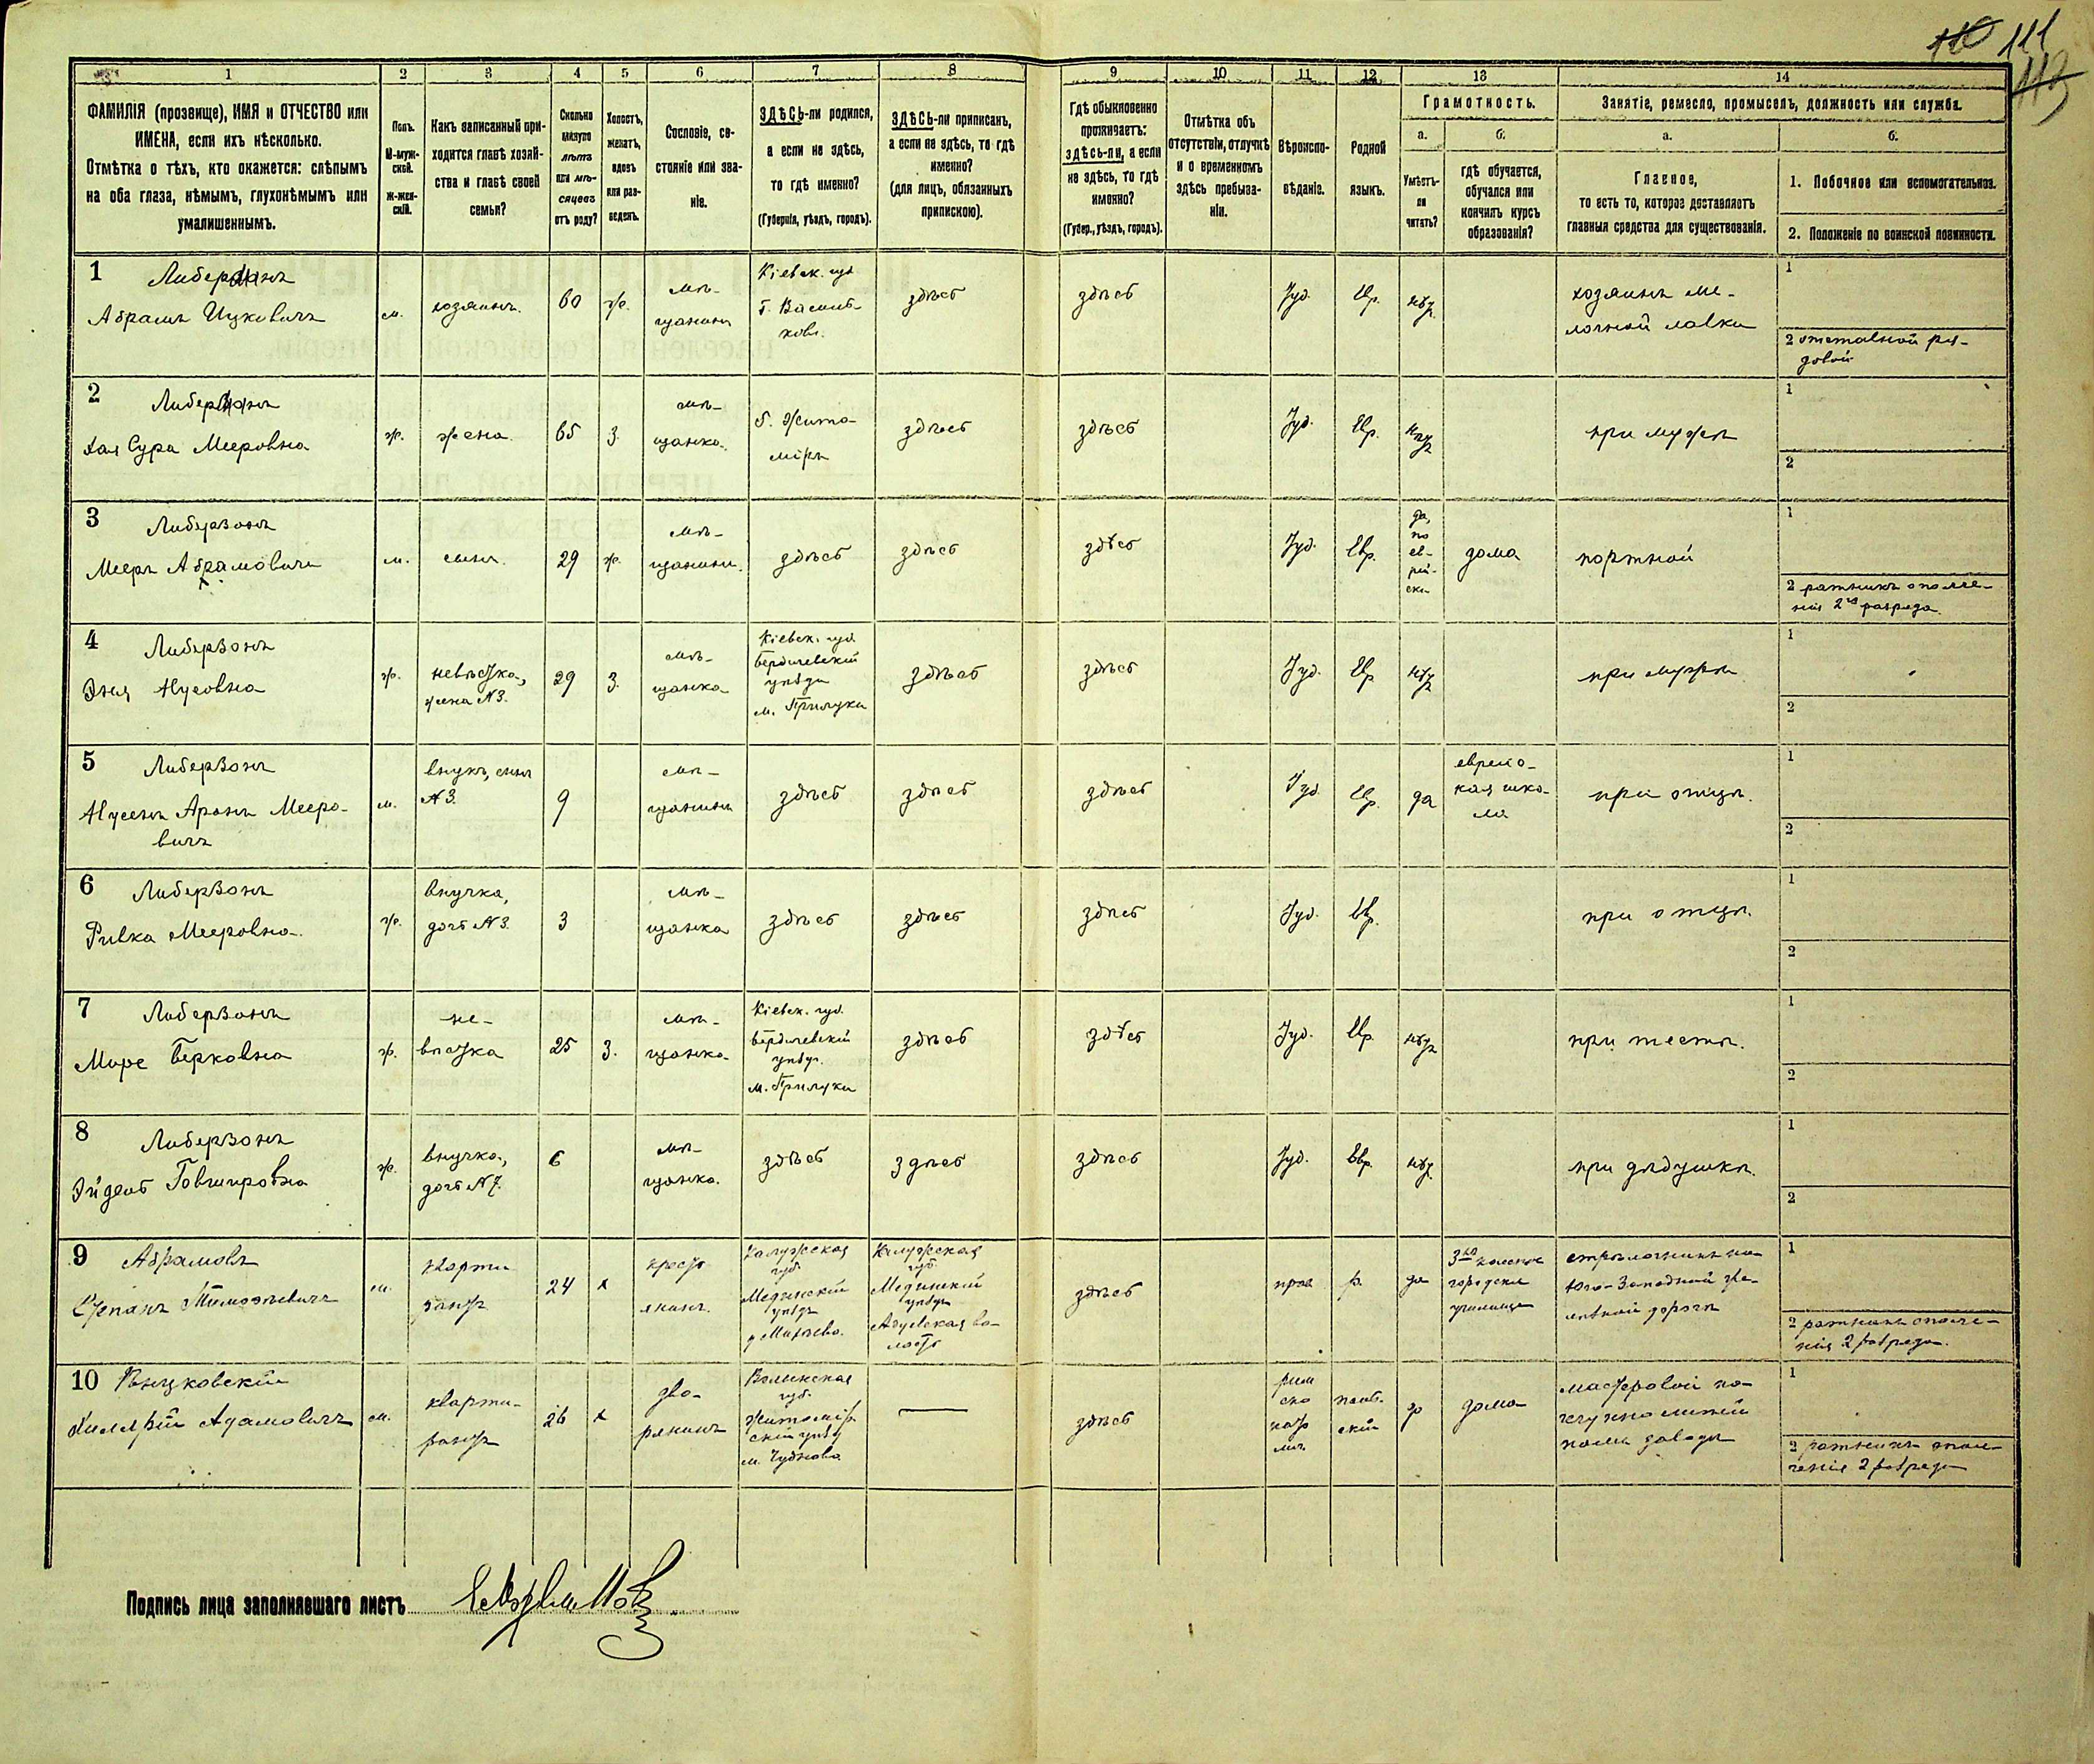 110 111
113
1 2 3 4 5 6 7 8 9 10 11 12 13 14
ФАМИЛІЯ (прозвище), ИМЯ и ОТЧЕСТВО или
ИМЕНА, если ихъ нѣсколько.
Отмѣтка о тѣхъ, кто окажется: слѣпымъ
на оба глаза, нѣмымъ, глухонѣмымъ или
умалишеннымъ.
Полъ.
М-муж-
ской.
Ж-жен-
скій.
Какъ записанный при-
ходится главѣ хозяй-
ства и главѣ своей
семьи?
Сколько
минуло
лѣтъ
или мѣ-
сяцевъ
отъ роду?
Холостъ,
женатъ,
вдовъ
или раз-
веденъ.
Сословіе, со-
стояніе или зва-
ніе.
ЗДѢСЬ-ли родился,
а если не здѣсь,
то гдѣ именно?
(Губернія, уѣздъ, городъ).
ЗДѢСЬ-ли приписанъ,
а если не здѣсь, то гдѣ
именно?
(для лицъ, обязанныхъ
припискою).
Гдѣ обыкновенно
проживаетъ:
здѣсь-ли, а если
не здѣсь, то гдѣ
именно?
(Губер., уѣздъ, городъ).
Отмѣтка объ
отсутствіи, отлучкѣ
и о временномъ
здѣсь пребыва-
ніи.
Вѣроиспо-
вѣданіе.
Родной
языкъ.
Грамотность.
а. б.
Умѣетъ-
ли
читать?
гдѣ обучается,
обучался или
кончилъ курсъ
образованія?
Занятіе, ремесло, промыселъ, должность или служба.
а. б.
Главное,
то есть то, которое доставляетъ
главныя средства для существованія.
1. Побочное или вспомогательное.
2. Положеніе по воинской повинности.
1 Либерзонъ
Абрамъ Ицковичъ
м.
хозяинъ.
60
ж.
мѣ-
щанинъ
Кіевск. губ
г. Василь-
ковъ.
здѣсь
здѣсь
Іуд.
Евр.
нѣтъ
хозяинъ ме-
лочной лавки
1
2 отставной ря-
довой
2 Либерзонъ
Хая Сура Мееровна
ж.
жена.
65
З.
мѣ-
щанка.
г. Жито-
міръ
здѣсь
здѣсь
Іуд.
Евр.
нѣтъ
при мужѣ
1
2
3 Либерзонъ
Мееръ Абрамовичъ
м.
сынъ.
29
ж.
мѣ-
щанинъ.
здѣсь
здѣсь
здѣсь
Іуд.
Евр.
да,
по
ев-
рей-
ски
дома
портной
1
2 ратникъ ополче-
нія 2го разряда.
4 Либерзонъ
Эня Нусовна
ж.
невѣстка,
жена №3.
29
З.
мѣ-
щанка
Кіевск. губ.
Бердичевскій
уѣздъ
м. Прилуки
здѣсь
здѣсь
Іуд.
Евр
нѣтъ
при мужѣ
1
2
5 Либерзонъ
Нусенъ Аронъ Мееро-
вичъ
м.
внукъ, сынъ
№3.
9
мѣ-
щанинъ
здѣсь
здѣсь
здѣсь
Іуд.
Евр.
да
еврейс-
кая шко-
ла
при отцѣ.
1
2
6 Либерзонъ
Ривка Мееровна.
ж.
внучка,
дочь №3.
3
мѣ-
щанка
здѣсь
здѣсь
здѣсь
Іуд.
Евр.
при отцѣ.
1
2
7 Либерзонъ
Маре Берковна
ж.
не-
вѣстка
25
З.
мѣ-
щанка
Кіевск. губ.
Бердичевскій
уѣздъ.
м. Прилуки
здѣсь
здѣсь
Іуд.
Евр.
нѣтъ
при тестѣ.
1
2
8 Либерзонъ
Эйдель
ж.
внучка,
дочь №7.
6
мѣ-
щанка.
здѣсь
здѣсь
здѣсь
Іуд.
Евр.
нѣтъ
при дѣдушкѣ.
1
2
9 Абрамовъ
Степанъ Тимофѣевичъ
м.
кварти
рантъ
24
х
кресть
янинъ.
Калужская
губ.
Медынскій
уѣздъ
Калужская
губ.
Медынскій
уѣздъ
во-
лость
здѣсь
прав
р.
да
городское
училище
стрѣлочникъ на
Юго-Западной же-
лѣзной дорогѣ
1
2 ратникъ ополче-
нія 2 разряда.
10
Адамовичъ
м.
кварти-
рантъ
26
х
дво-
рянинъ
Волынская
губ.
Житомір-
скій уѣздъ
м. Чудновъ
здѣсь
рим
ско
като
лич.
поль-
скій
да
дома
мастеровой на
чугунно литей
номъ заводѣ
1
2 ратникъ опол-
ченія 2 разряда
Подпись лица заполнявшаго листъ